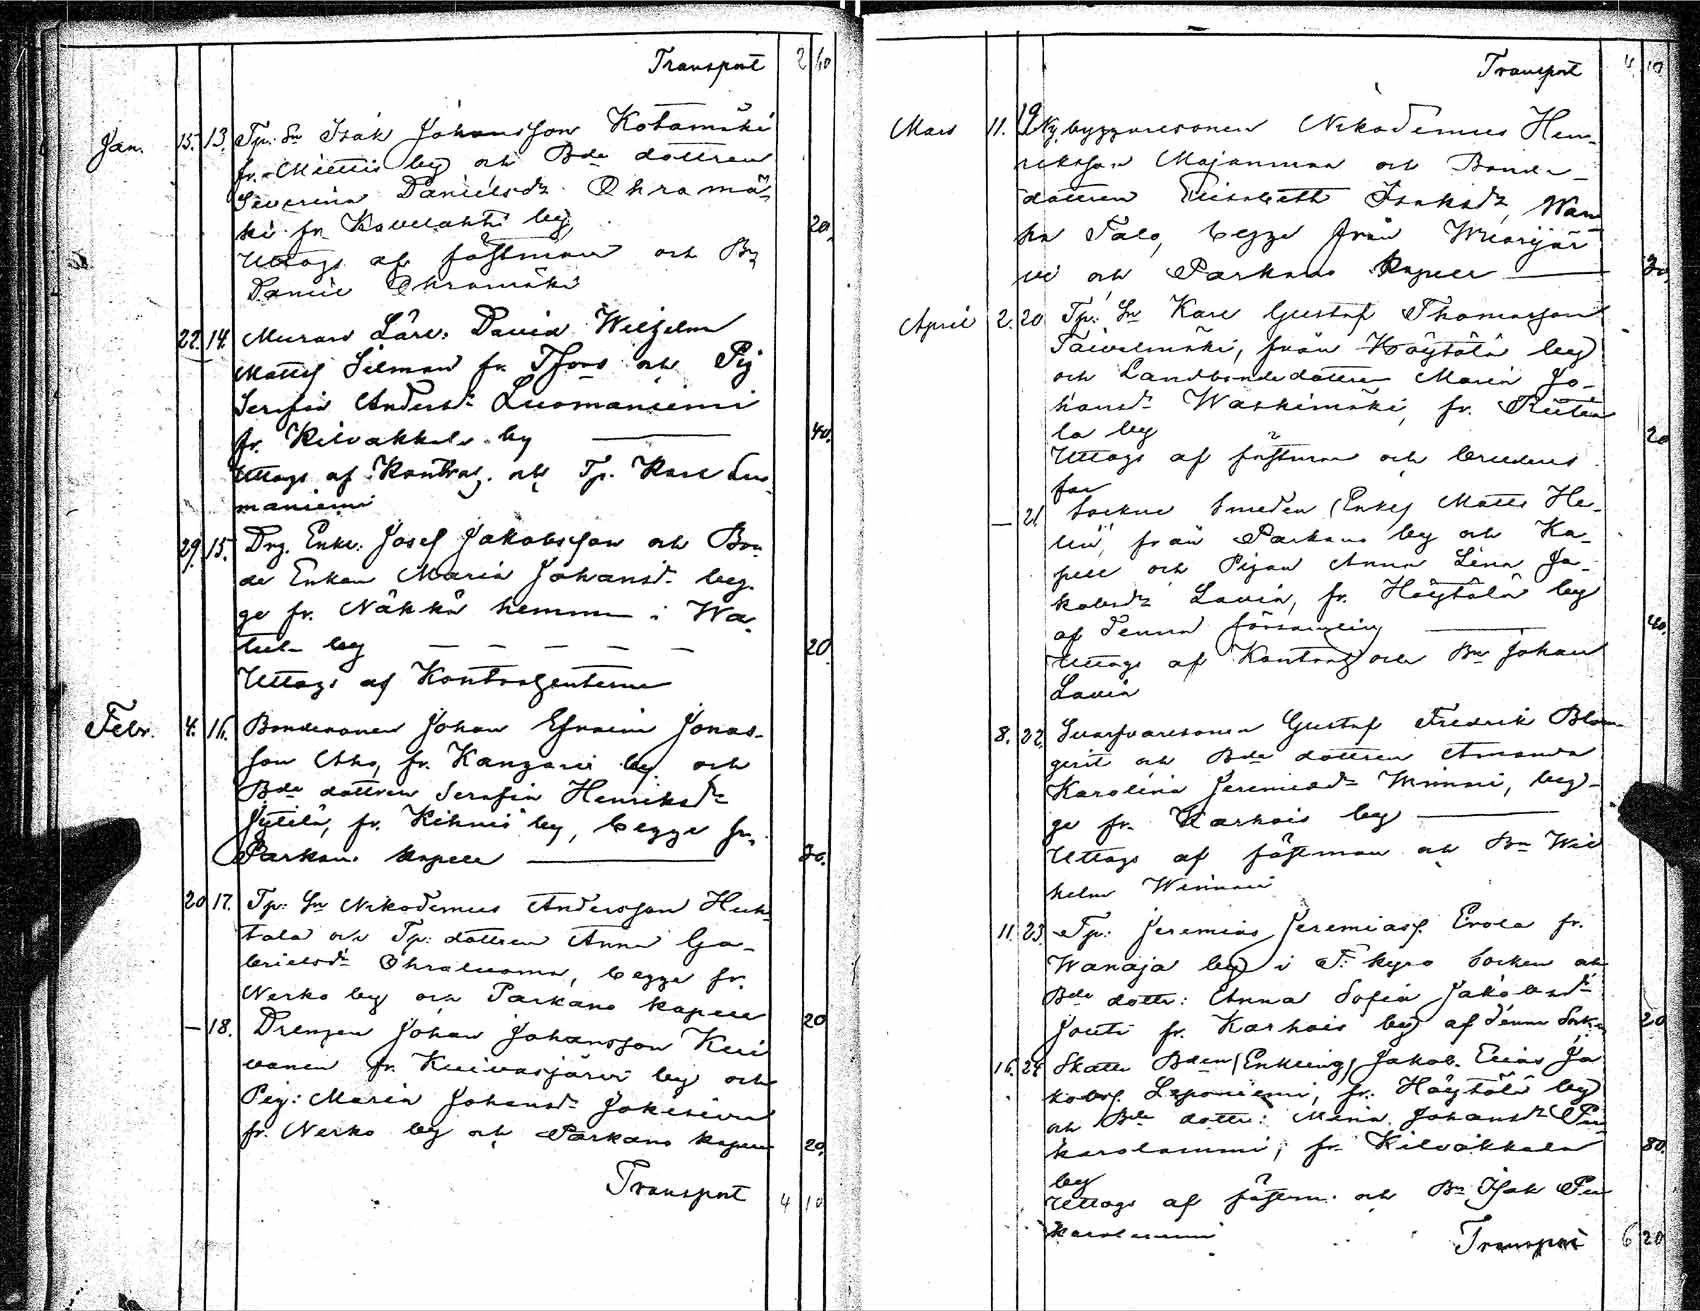 Transport 2 40
Jan. 15. 13. Tp: Sn Isak Johansson Kotamäki
fr. Miettis by och Bde dottren
Severina Danielsdr Ohramä-
ki fr. Kovelahti by, 20.
Uttogs af fästman och Bn
Daniel Ohramäki
22. 14. Murare Lärl: David Wilhelm
Matts Selman fr. Tfors och Pig
Serafia Andersdr Luomaniemi
fr. Kilvakkala by 40.
Uttogs af Kontrah. och Tp. Karl Luo-
maniemi
29. 15. Drg. Enkl: Josef Jakobsson och Bon-
de Enkan Maria Johansd. beg-
ge fr. Näkkä hemman i Wa-
tula by — — — — — 20.
Uttogs af Kontrahenterne
Febr. 4. 16. Bondesonen Johan Efraim Jonas-
son Aho, fr. Kangari by och
Bde dottren Serafia Henriksdr
Jytilä, fr. Kihniö by, begge fr.
Parkano kapell 20.
20 17. Tp: Sn Nikodemus Andersson Huh-
tala och Tp: dottren Anna Ga-
brielsdr Ohraluoma, begge fr.
Nerko by och Parkano kapell 20
— 18. Drengen Johan Johansson Kui-
vanen fr. Kuivasjärvi by och
Pig: Maria Johansdr Jokisiira
fr. Nerko by och Parkano kapell 20.
Transport 4 10
Transport 4 10
Mars 11. 19 Nybyggaresonen Nikodemus Hen-
riksson Majanmaa och Bonde-
dottren Elisabeth Isaksdr, Wan-
ha Talo, begge från
och Parkano kapell 20.
April 2. 20 Tp: Sn Karl Gustaf Thomasson
Taivalmäki, från Höytölä by
och Landbondedottren Maria Jo-
hansdr Waskimäki, fr. Riitia-
la by 20
Uttogs af fästman och brudens
far
— 21 Sockne Smeden (Enkl) Matts He-
lin, från Parkano by och Ka-
pell och Pigan Anna Lena Ja-
kobsdr Lavia, fr. Höytölä by
af denna församling 40.
Uttogs af Kontrah och Bn Johan
Lavia
8. 22. Svarfvaresonen Gustaf Fredrik Blom-
qvist och Bde dottren Amanda
Karolina Jeremiasdr Winnari, beg-
ge fr. Karhois by
Uttogs af fästman och Bn Wil-
helm Winnari
11. 23 Tp: Jeremias Jeremiass. Erola fr.
Wanaja by i T: kyro Socken och
Bde dottr: Anna Sofia Jakobsdr
Jouti fr. Karhois by af denna Socken 20
16. 24 Skatte Bden (Enkling) Jakob Elias Ja-
kobs. Leponiemi, fr. Höytölä by
och Bde dottr: Maria Johansdr Pu-
karolammi, fr. Kilvakkala 80.
by
Uttogs af fästm. och Bn Isak Pu-
karolammi
Transport 6 20